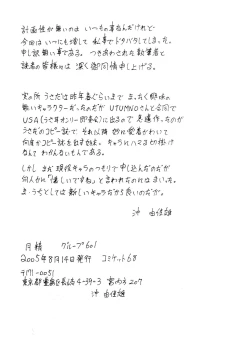 計画性が無いのは いつもの事なんだけれど
今回は いつにも増して 私事でドタバタしてしまった。
申し訳無い事である。つき済まされた 執筆者と
読者の皆様には 深く御同情申し上げる。
実の所 うさだは昨年暮ぐらいまで まったく興味の
無いキャラクターだったのだが UTUMNOさんと合同で
USA(うさだオンリー即売会)に出るので 急遽作ったのが
うさだのコピー誌で それ以降 妙に愛着がわいて
何度かコピー誌を出す始末。キャラにハマる切掛け
なんて わかんないもんである。
しかし まだ現役キャラのつもりで 申し込んだのだが
何人かに「懐しいですね」と言われたのにはまいった。
ま、うちとしては 新しいキャラだから良いのだが。
沖 由佳雄
月精 グループ601
2005年8月14日発行 コミケット68
〒171-0051
東京都豊島区長崎4-39-3 207
沖 由佳雄